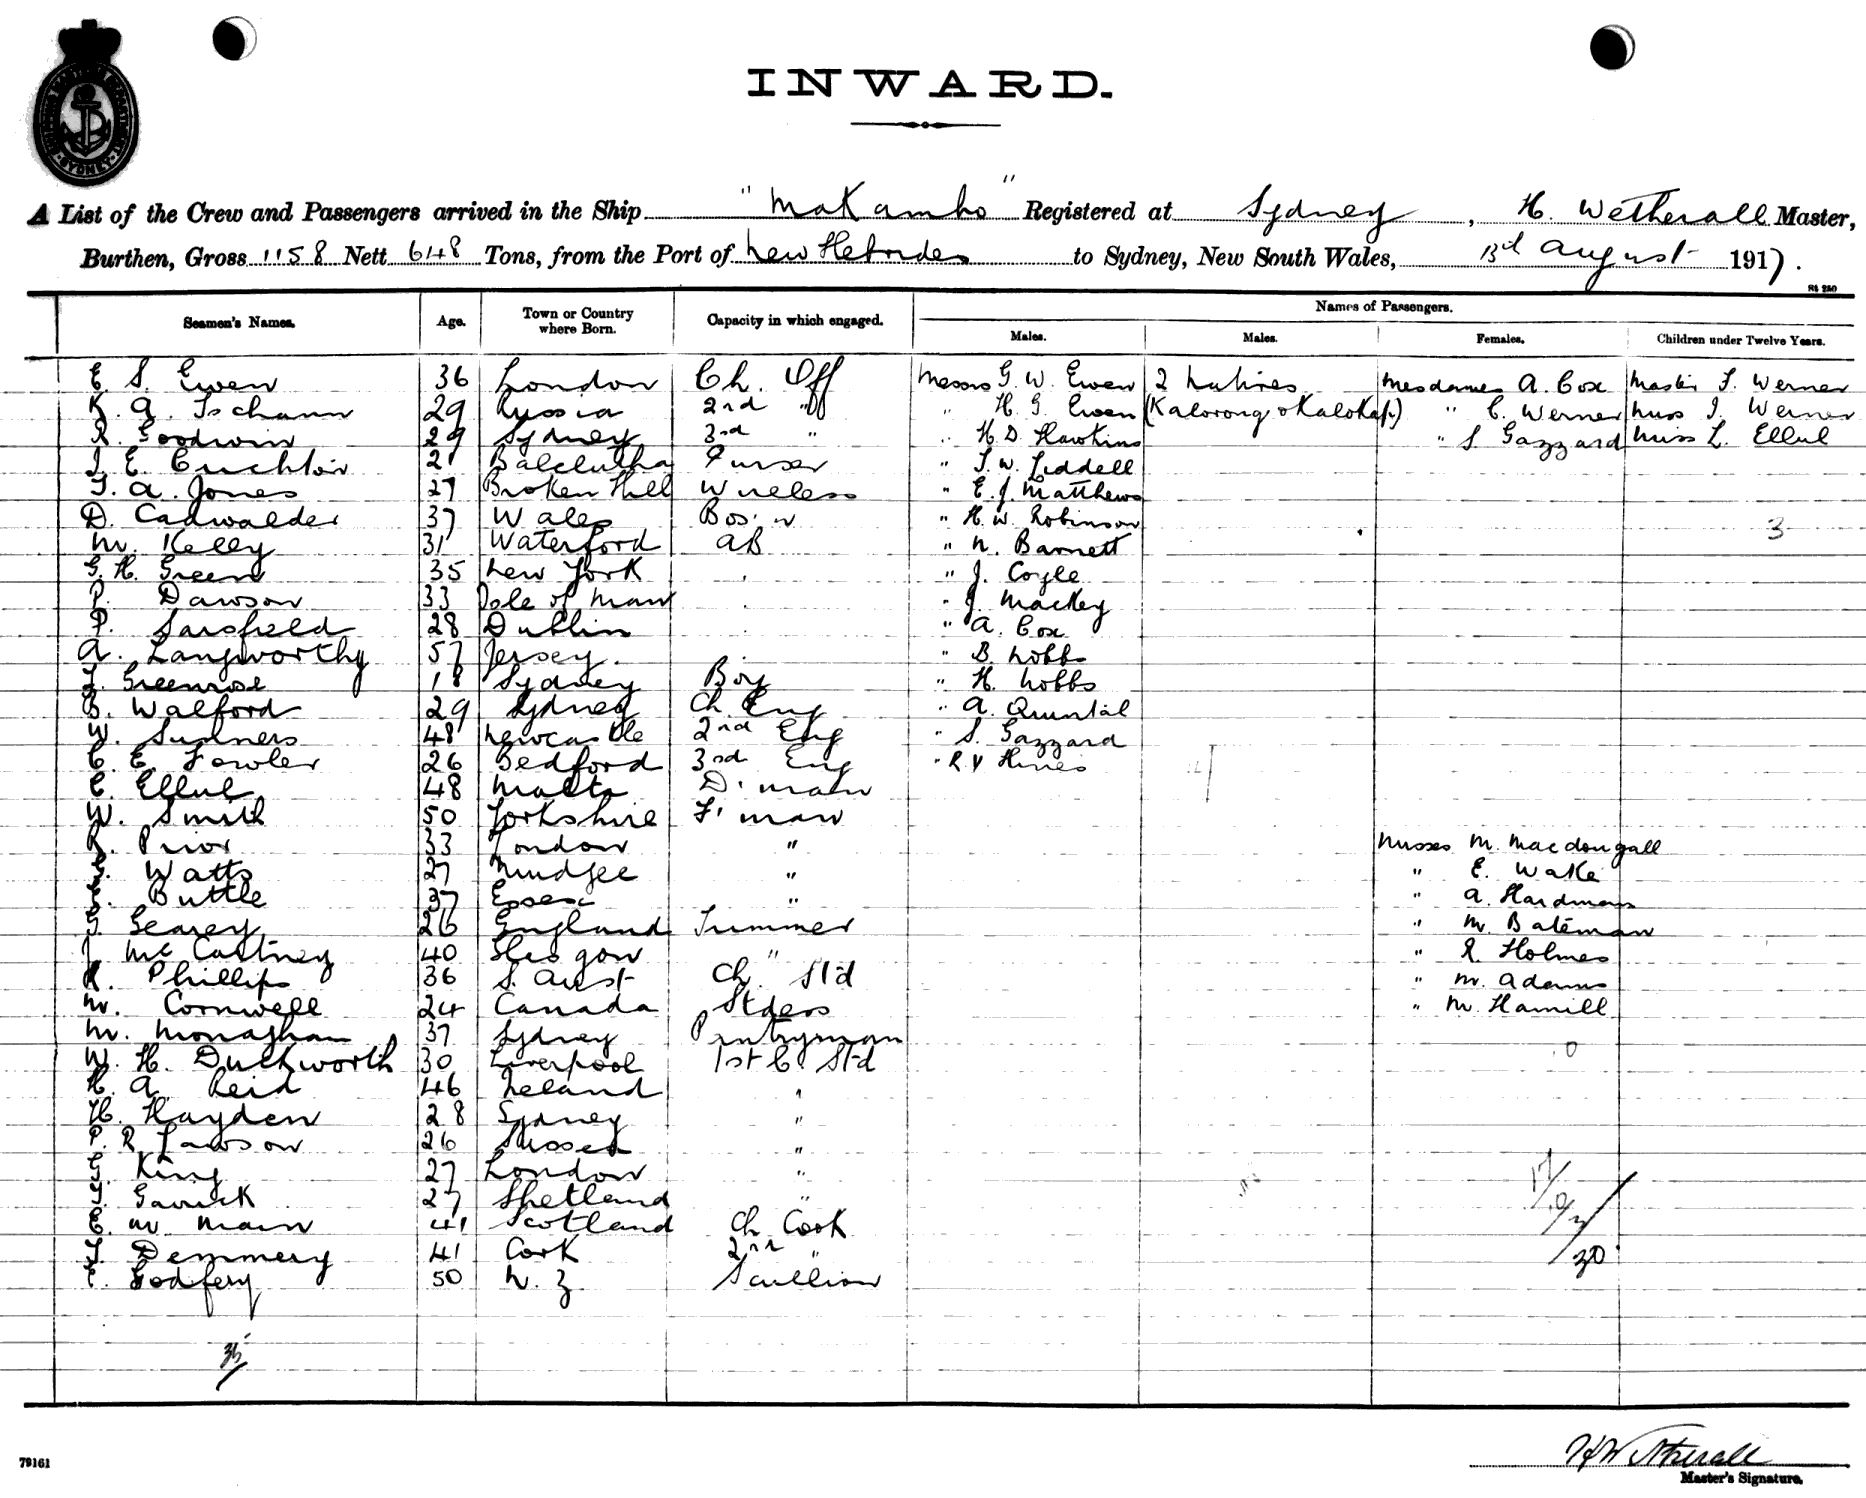 INWARD.
A List of the Crew and Passengers arrived in the Ship "Makambo" Registered at Sydney, H. Wetherall Master,
Burthen, Gross 1158 Nett 648 Tons, from the Port of New Hebrides to Sydney, New South Wales, 13th August 1917.
Seamen's Names. Age. Town or Country where Born. Capacity in which engaged. Names of Passengers.
Males. Males. Females. Children under Twelve Years.
E. S. Ewen 36 London Ch. Off Messrs G. W. Ewen 2 Natives Mesdames A. Cox Master F. Werner
K. A. Tschaun 29 Russia 2nd " " H. G. Ewen (Kalorong & Kalokaf.) " C. Werner Miss I. Werner
R. Goodwin 29 Sydney 3rd " " H. D. Hawkins " S. Gazzard Miss L. Ellul
J. E. Crichton 21 Balclutha Purser " T. W. Liddell
T. A. Jones 27 Broken Hill Wireless " E. J. Matthews
D. Cadwalder 37 Wales Bos'n " H. W. Robinson 3
M. Kelly 31 Waterford AB " N. Barnett
G. H. Green 35 New York " J. Coyle
P. Dawson 33 Isle of Man " J. Mackey
P. Sarsfield 28 Dublin " A. Cox
A. Langworthy 57 Jersey. " B. Nobbs
Greenrose 18 Sydney Boy " H. Nobbs
B. Walford 29 Sydney Ch. Eng " A. Quintal
W. Sumners 48 Newcastle 2nd Eng " S. Gazzard
C. E. Fowler 26 Bedford 3rd Eng " R V Hines
C. Ellul 48 Malta D'man
W. Smith 50 Yorkshire F'man
R. Prior 33 London " Misses M. Macdougall
Watts 27 Mudgee " " E. Wake
Buttle 37 Essex " " A. Hardman
G. Searey 26 England Trimmer " M. Bateman
J. McCartney 40 Glasgow " " R. Holmes
R. Phillips 36 S. Aust Ch St'd " M. Adams
M. Cornwell 24 Canada Stdess " M. Hamill
M. Monaghan 37 Sydney Pantryman
W. H. Duckworth 30 Liverpool 1st C. Std 0
H. A. Reid 46 Ireland "
H. Hayden 28 Sydney "
P. R. Lawson 26 Sussex "
G. King 27 London "
T. Garrick 27 Shetland "
C. M. Main 41 Scotland Ch Cook
T. Demmery 41 Cork 2nd "
E. Godfery 50 N. Z Scullion
17/
30
79161
H Wetherall
Master's Signature.